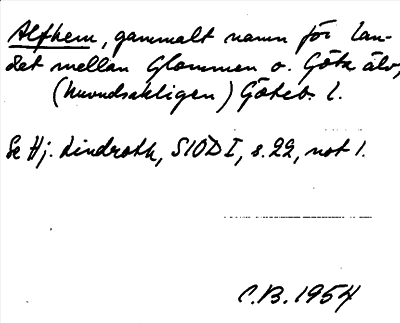 Alfhem, gammalt namn för lan-
det mellan Glommen o. Göta älv,
(huvudsakligen) Göteb. l.
Se Hj. Lindroth, SIOD I, s. 22, not 1.
C.B. 1954